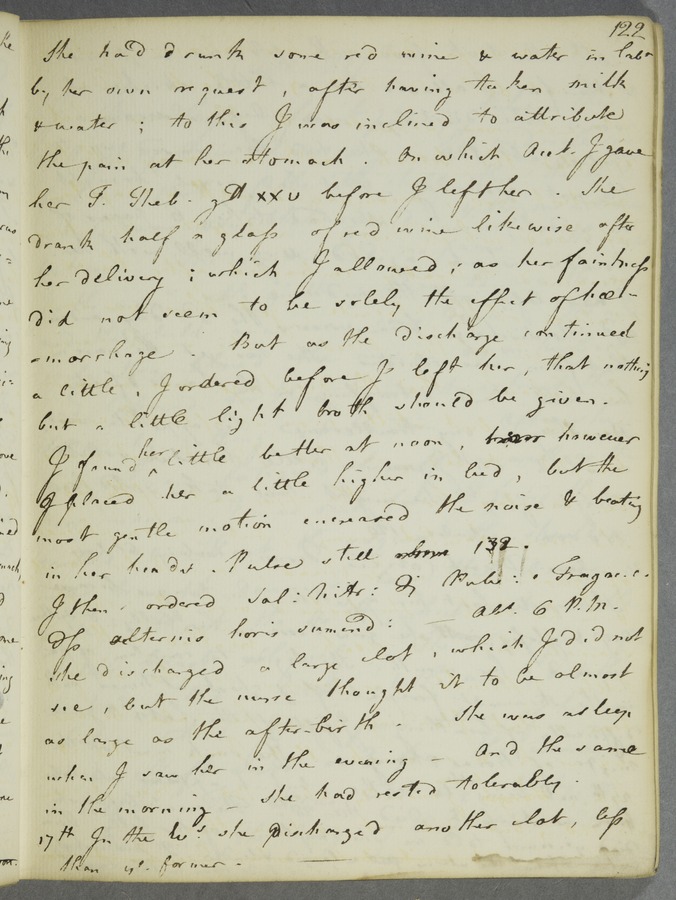 122
She had drunk some red wine & water in labr
by her own request, after having taken milk
& water; to this I was inclined to attribute
the pain at her stomach. On which Acct. I gave
her T. Theb. gtt xxv before I left her. She
drank half a glass of red wine likewise after
her delivery; which I allowed; as her faintness
did not seem to be solely the effect of hæ-
-morrhage. But as the discharge continued
a little, I ordered before I left her, that nothing
but a little light broth should be given.
I found her little better at noon, however
I placed her a little higher in bed, but the
most gentle motion encreased the noise & beating
in her head. Pulse still 132.
I then ordered Sal: Nitr: Pulv: e Tragac. c.
alternis horis sumend: — abt. 6 P.M.
she discharged a large clot, which I did not
see, but the nurse thought it to be almost
as large as the after-birth. She was asleep
when I saw her in the evening — and the same
in the morning — She had rested tolerably.
17th In the she discharged another clot, less
than ye. former —